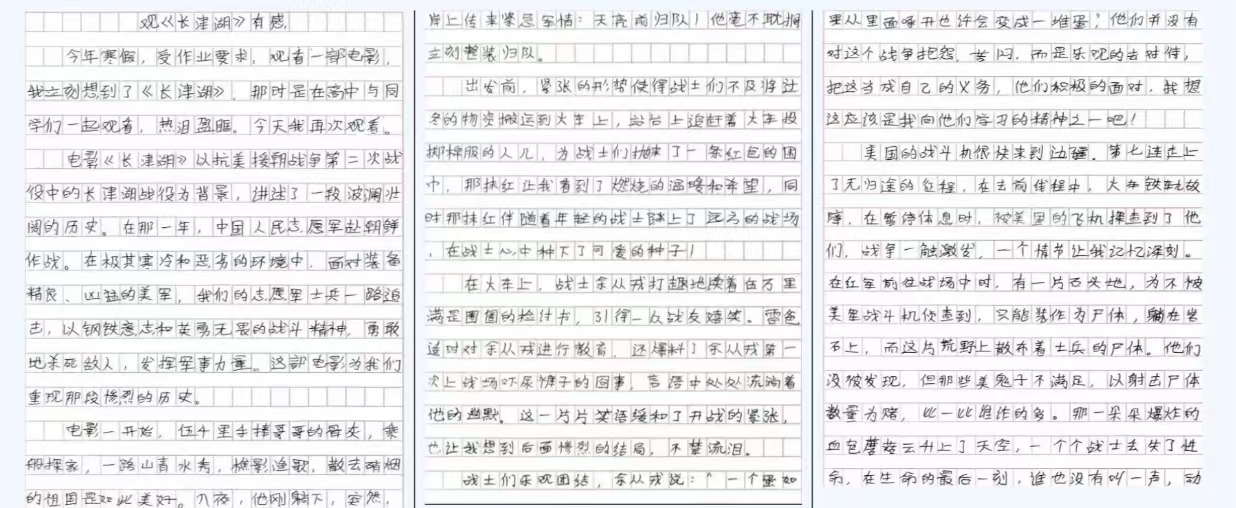 观《长津湖》有感
今年寒假，受作业要求，观看一部电影，
我立刻想到了《长津湖》，那时是在高中与同
学们一起观看，热泪盈眶。今天我再次观看。
电影《长津湖》以抗美援朝战争第二次战
役中的长津湖战役为背景，讲述了一段波澜壮
阔的历史。在那一年，中国人民志愿军赴朝鲜
作战。在极其寒冷和恶劣的环境中，面对装备
精良、凶猛的美军，我们的志愿军士兵一路追
击，以钢铁意志和英勇无畏的战斗精神，勇敢
地杀死敌人，发挥军事力量。这部电影为我们
重现那段惨烈的历史。
电影一开始，伍千里手捧哥哥的骨灰，乘
船探家，一路山青水秀，渔歌，散去硝烟
的祖国是如此美好。入夜，他刚躺下，突然，
岸上传来紧急军情：天亮前归队！他毫不耽搁
立刻整装归队。
出发前，紧张的形势使得战士们不及将过
冬的物资搬运到火车上，站台上追赶着火车投
掷棉服的人儿，为战士们抛来了一条红色的围
巾，那抹红让我看到了燃烧的温暖和希望，同
时那抹红伴随着年轻的战士踏上了远方的战场
，在战士心中种下了可爱的种子！
在火车上，战士余从戎打趣地读着伍万里
满是圈圈的检讨书，引得一众战友嬉笑。雷爸
适时对余从戎进行教育，还爆料了余从戎第一
次上战场吓尿裤子的囧事，言语中处处流淌着
他的幽默。这一片片笑语缓和了开战的紧张，
也让我想到后面惨烈的结局，不禁流泪。
战士们乐观团结，余从戎说：“一个蛋如
果从里面啄开也许会变成一堆蛋；他们并没有
对这个战争抱怨，苦闷，而是乐观的去对待，
把这当成自己的义务，他们积极的面对，我想
这应该是我向他们学习的精神之一吧！
美国的战斗机很快来到边疆，第七连走上
了无归途的征程，在去前线程中，火车铁轨故
障，在暂停休息时，被美军的飞机探查到了他
们，战争一触激发，一个情节让我记忆深刻。
在红军前往战场中时，有一片石头地，为不被
美军战斗机侦查到，只能装作为尸体，躺在岩
石上，而这片荒野上散布着士兵的尸体。他们
没被发现，但那些美鬼子不满足，以射击尸体
数量为赌，比一比谁炸的多。那一朵朵爆炸的
血色蘑菇云升上了天空，一个个战士去失了性
命，在生命的最后一刻，谁也没有叫一声，动